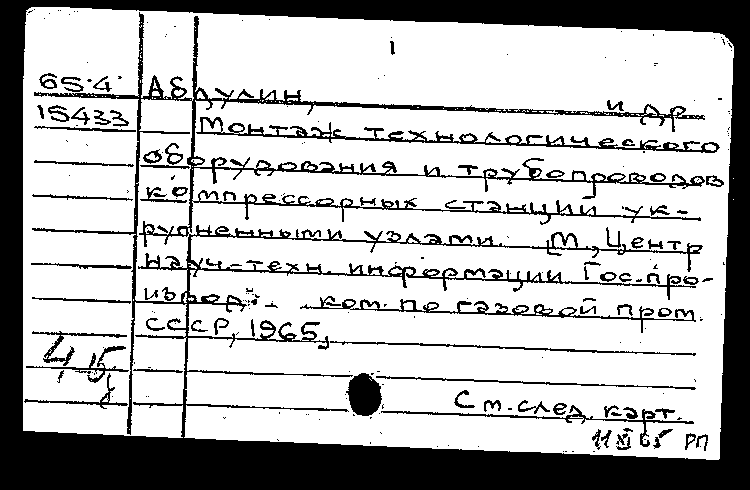 1
65.4. Абдулин, и др
15433 Монтаж технологического
оборудования и трубопроводов
компрессорных станций ук-
рупненными узлами. [М., Центр
науч.-техн. информации Гос. про-
извод. ком. по газовой пром.
СССР, 1965,
См. след. карт.
11 XI 65 РП